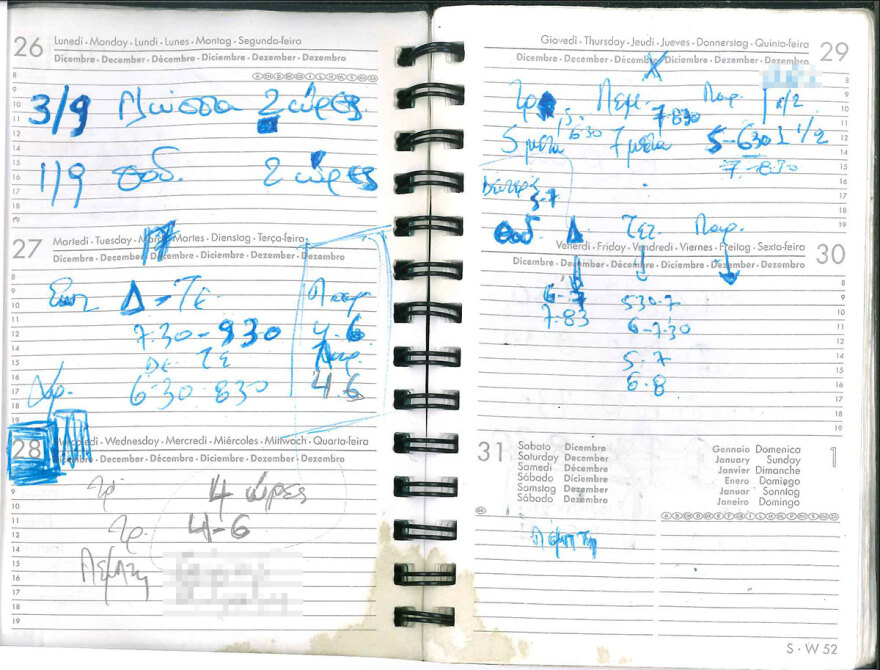 26 Lunedì · Monday · Lundi · Lunes · Montag · Segunda-feira
Dicembre · December · Décembre · Diciembre · Dezember · Dezembro
8
9
10
3/9 Γλώσσα 2 ώρες
11
12
14
15
1/9 2 ώρες
16
17
18
19
27 Martedì · Tuesday · Mardi · Martes · Dienstag · Terça-feira
Dicembre · December · Décembre · Diciembre · Dezember · Dezembro
8
9
10
Δ - Τε Παρ
11
12
7.30-930 4.6
14
Δε ΤΕ Παρ.
15
16
6-30-830 4.6
17
18
19
28 Mercoledì · Wednesday · Mercredi · Miércoles · Mittwoch · Quarta-feira
Dicembre · December · Décembre · Diciembre · Dezember · Dezembro
9
Τρ 4 ώρες
10
11
Τρ. 4-6
12
14
Πέμπτη
15
16
17
18
19
Giovedì · Thursday · Jeudi · Jueves · Donnerstag · Quinta-feira 29
Dicembre · December · Décembre · Diciembre · Dezember · Dezembro
X
8
9
Τρ Πεμ. Παρ. 1 1/2
10
7-830
11
630
12
5 μετα 7 μετα 5-630 1 1/2
14
7-830
15
16
Δευτέρα
17
5-7
18
19
Δ Τετ. Παρ.
Venerdì · Friday · Vendredi · Viernes · Freitag · Sexta-feira 30
Dicembre · December · Décembre · Diciembre · Dezember · Dezembro
8
9
6-7 530-7
10
7-83
11
6-7-30
12
14
5-7
15
16
6-8
17
18
19
31 Sabato Dicembre
Saturday December
Samedi Décembre
Sábado Diciembre
Samstag Dezember
Sábado Dezembro
Gennaio Domenica 1
January Sunday
Janvier Dimanche
Enero Domingo
Januar Sonntag
Janeiro Domingo
Πέμπτη
S · W 52